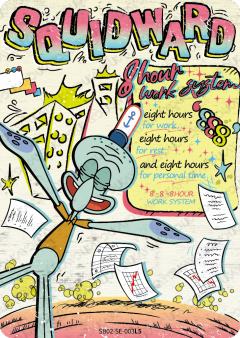 SQUIDWARD
8hour
work system
eight hours
for work.
eight hours
for rest.
and eight hours
for personal time.
8-8-8HOUR
WORK SYSTEM
SB02-SE-003LS